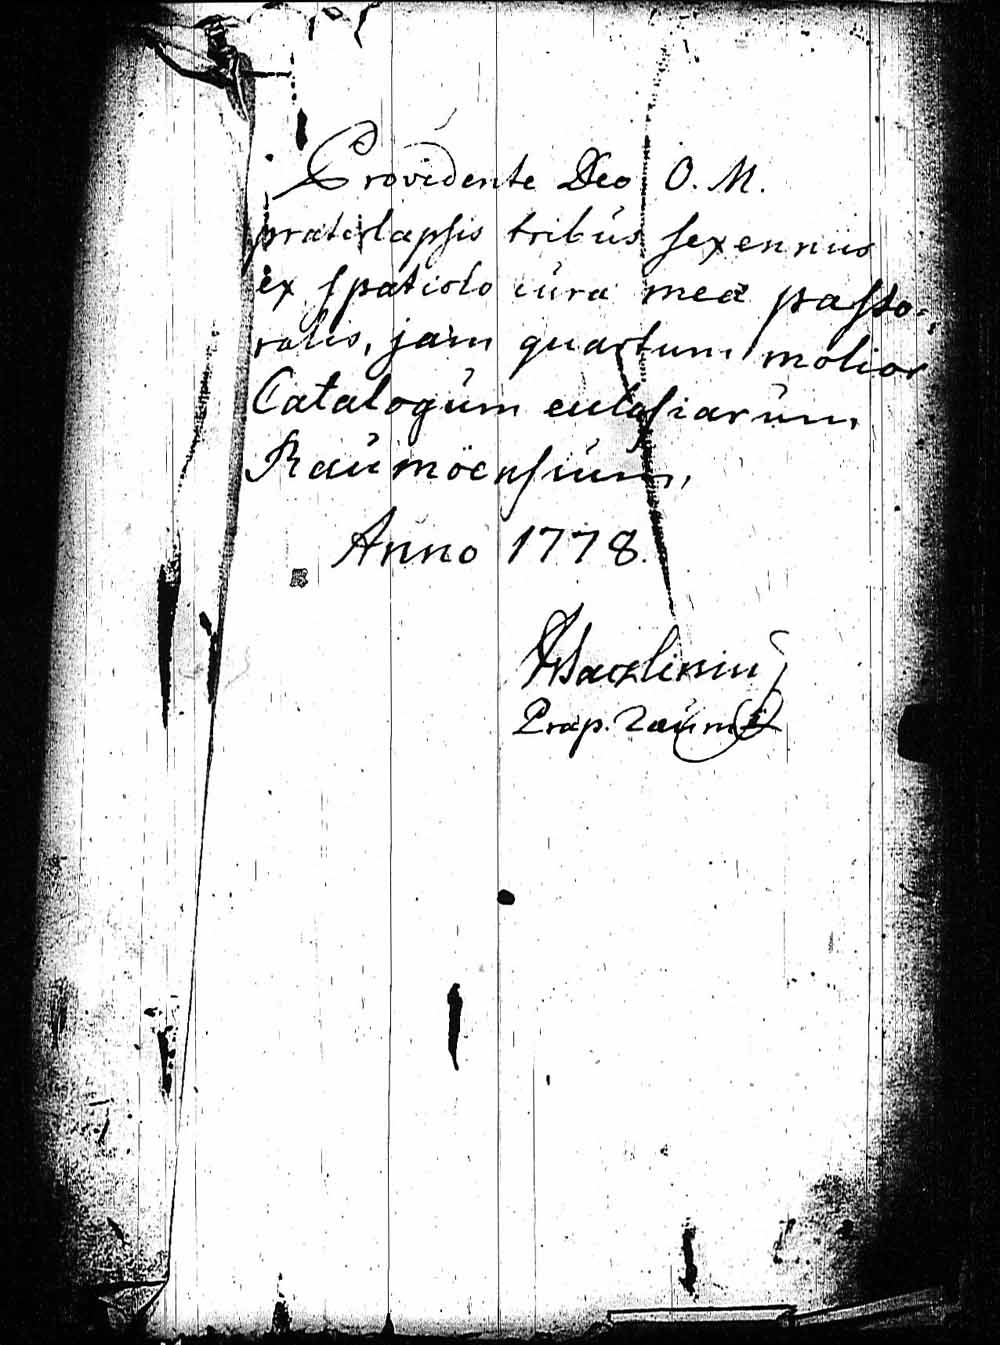 Providente Deo O. M.
præterlapsis tribus sexenniis
ex spatiolo curæ meæ pasto-
ralis, jam quartum molior
Catalogum ecclesiarum
Raumoensium,
Anno 1778.
Præp. Raum